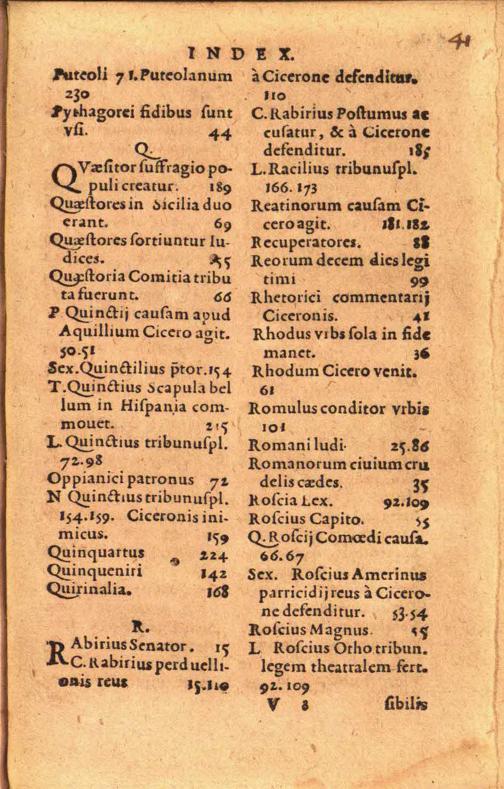 41
INDEX.
Puteoli 71. Puteolanum
230
Pythagorei fidibus sunt
vsi. 44
Q.
QVæsitor suffragio po-
puli creatur. 189
Quæstores in Sicilia duo
erant. 69
Quæstores sortiuntur Iu-
dices. 55
Quæstoria Comitia tribu
ta fuerunt. 66
P Quinctij causam apud
Aquillium Cicero agit.
50.51
Sex. Quinctilius p̄tor. 154
T. Quinctius Scapula bel
lum in Hispania com-
mouet. 215
L. Quinctius tribunuspl.
72.98
Oppianici patronus 72
N Quinctius tribunuspl.
154.159. Ciceronis ini-
micus. 159
Quinquartus 224
Quinqueniri 142
Quirinalia. 168
R.
RAbirius Senator. 15
C. Rabirius perduelli-
onis reus 15.110
à Cicerone defenditur.
110
C. Rabirius Postumus ac
cusatur, & à Cicerone
defenditur. 185
L. Racilius tribunuspl.
166. 173
Reatinorum causam Ci-
cero agit. 181.182
Recuperatores. 88
Reorum decem dies legi
timi 99
Rhetorici commentarij
Ciceronis. 41
Rhodus vrbs sola in fide
manet. 36
Rhodum Cicero venit.
61
Romulus conditor vrbis
101
Romani ludi. 25.86
Romanorum ciuium cru
delis cædes. 35
Roscia Lex. 92.109
Roscius Capito. 55
Q. Roscij Comœdi causa.
66.67
Sex. Roscius Amerinus
parricidij reus à Cicero-
ne defenditur. 53.54
Roscius Magnus. 55
L Roscius Otho tribun.
legem theatralem fert.
92.109
V 8 sibilis